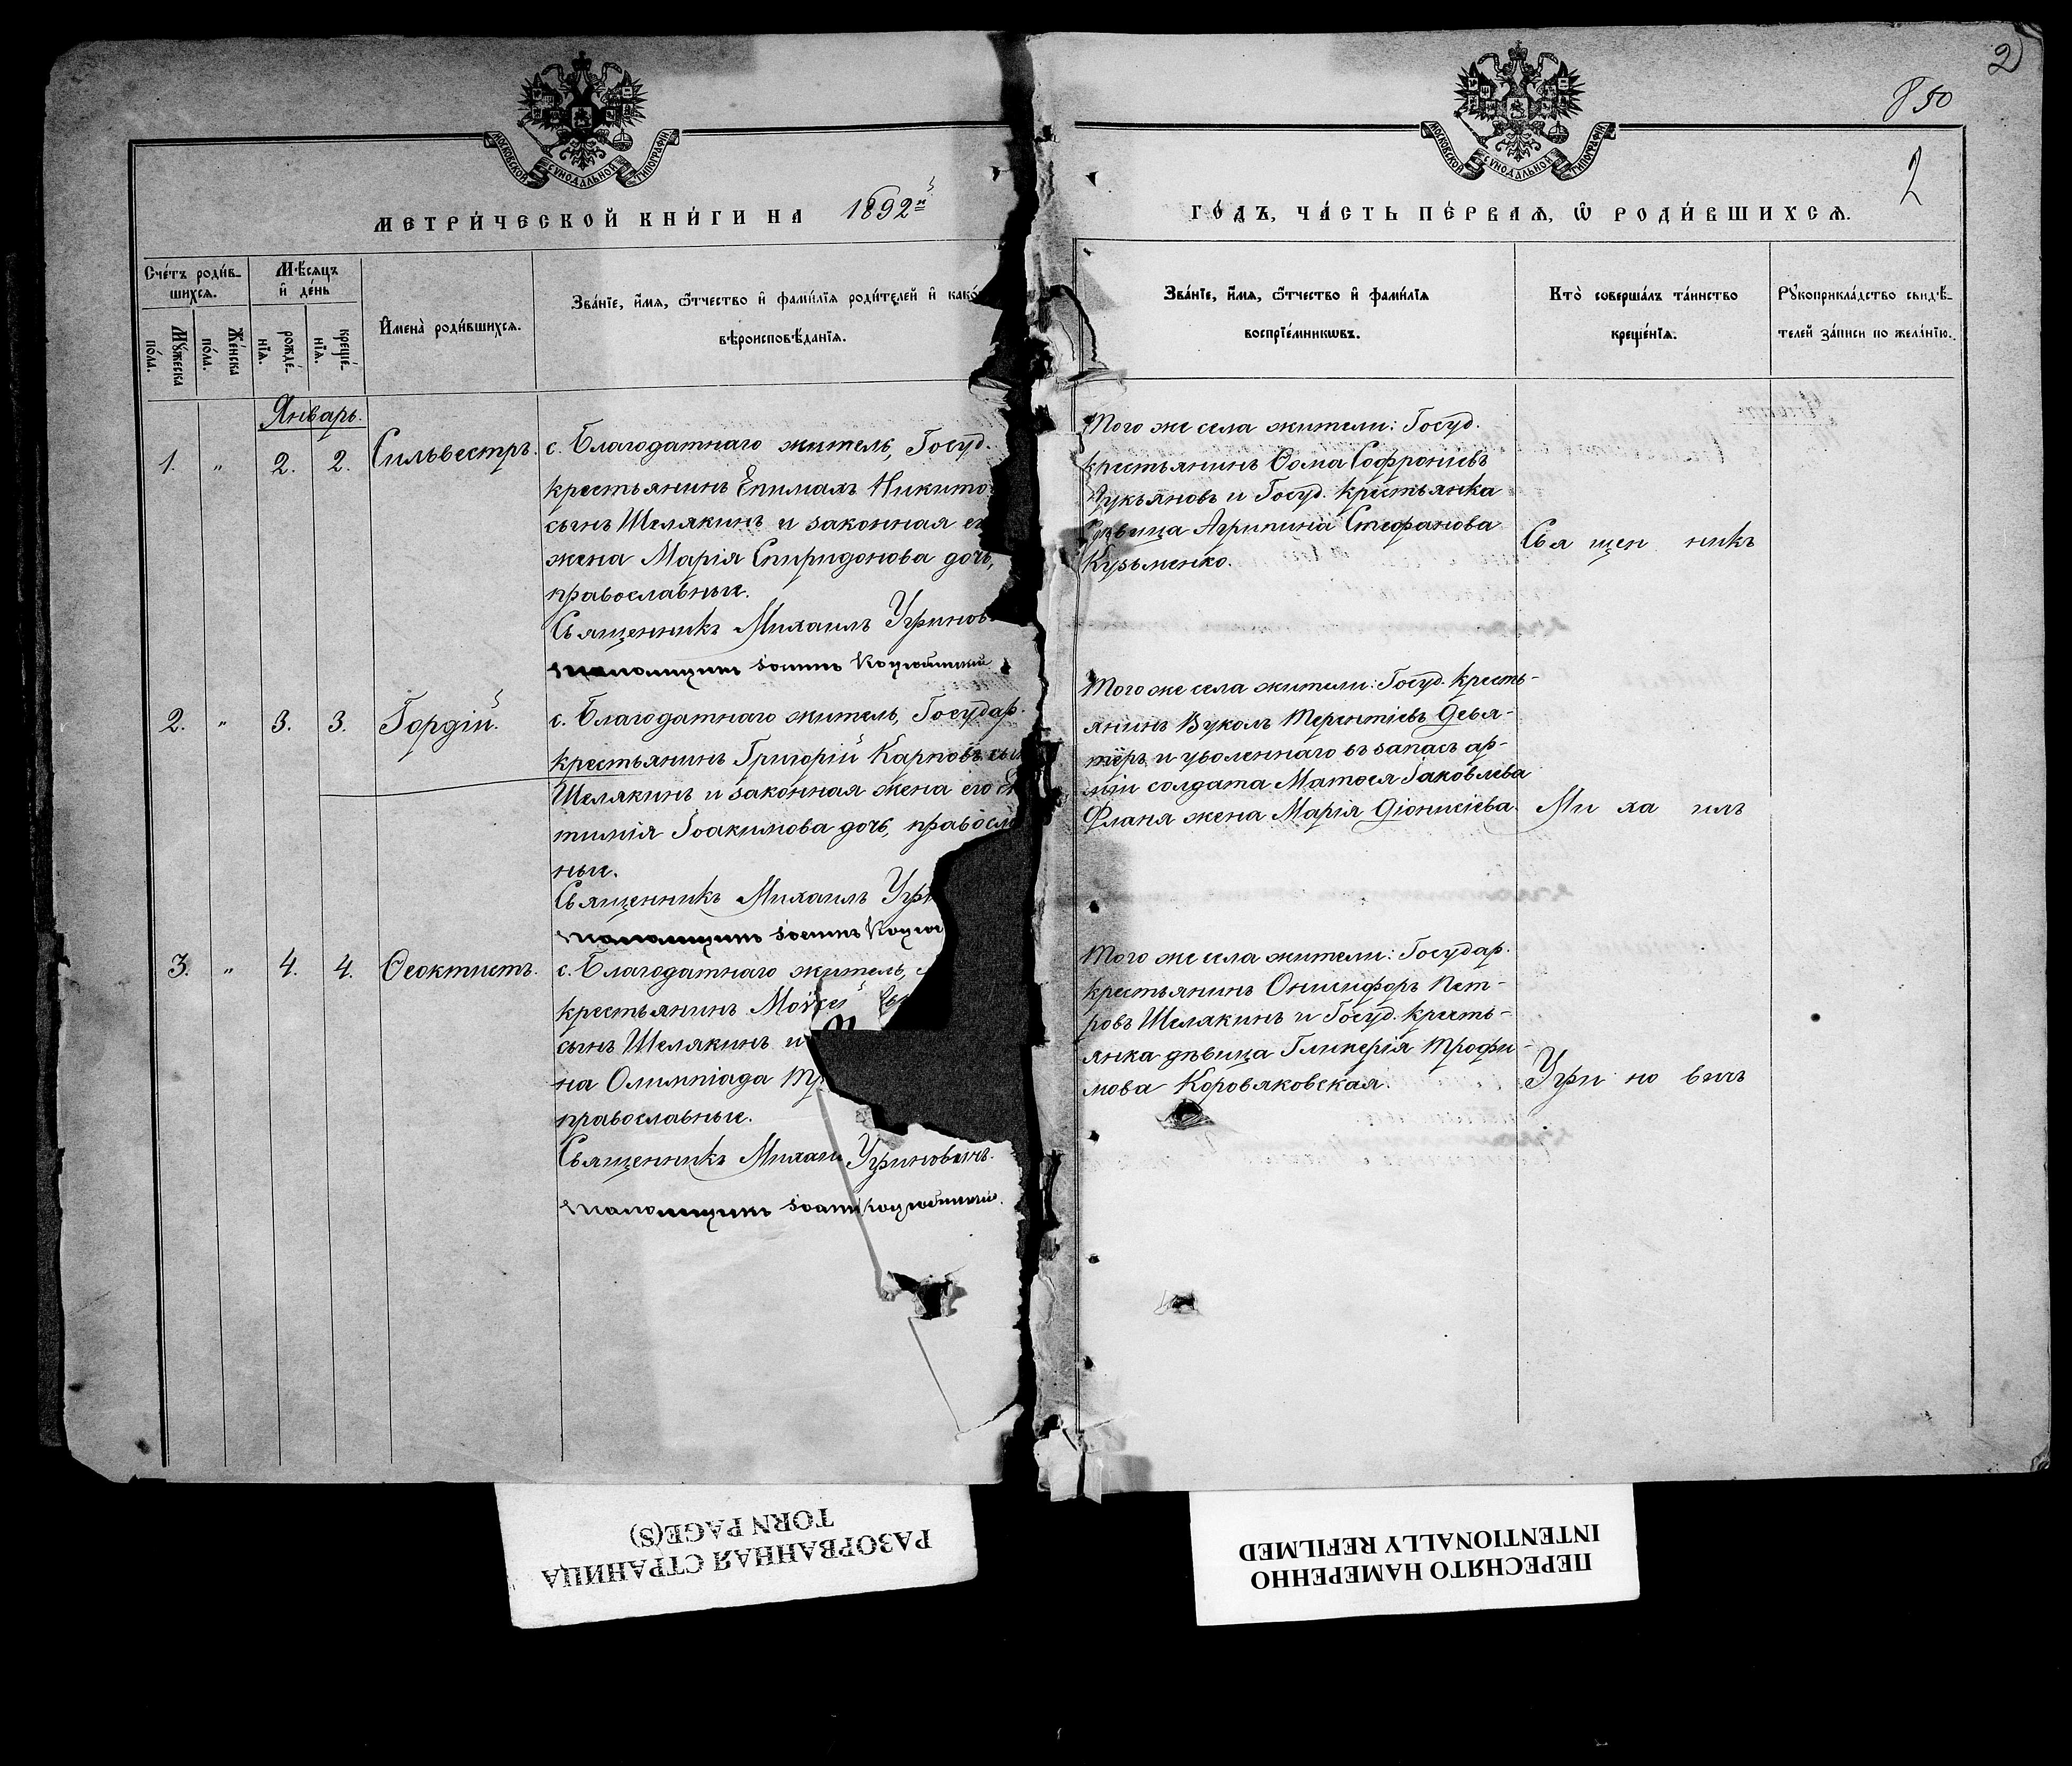 2
850
2
МОСКОВСКОЙ СѴНОДАЛЬНОЙ ТИПОГРАФІИ
МОСКОВСКОЙ СѴНОДАЛЬНОЙ ТИПОГРАФІИ
МЕТРИ́ЧЕСКОЙ КНИ́ГИ НА 1892й
ГО́ДЪ, ЧА́СТЬ ПЕ́РВАѦ, Ѡ҆ РОДИ́ВШИХСѦ.
Сче́тъ роди́в-
шихсѧ.
Мꙋ́жеска
по́ла.
Же́нска
по́ла.
Мѣ́сѧцъ
и҆ де́нь
рожде́-
нїѧ.
креще́-
нїѧ.
И҆мена̀ роди́вшихсѧ.
Зва́нїе, и҆́мѧ, ѻ҆́тчество и҆ фами́лїѧ роди́телей и҆ како́
вѣроисповѣ́данїѧ.
Зва́нїе, и҆́мѧ, ѻ҆́тчество и҆ фами́лїѧ
воспрїе́мникѡвъ.
Кто̀ соверша́лъ та́инство
креще́нїѧ.
Рꙋкоприкла́дство свидѣ́-
телей за́писи по жела́нїю.
Январь.
1. „ 2. 2. Сильвестръ.
с. Благодатнаго житель, Госуд.
крестьянинъ Епимахъ Никито
сынъ Шелякинъ и законная ег
жена Марія Спиридонова дочь,
православные.
Священникъ Михаилъ Угринов
Того же села жители: Госуд.
крестьянинъ Ѳома Софроніевъ
Лукьяновъ и Госуд. крестьянка
Агрипина Стефанова
Кузьменко.
Свя щен никъ
2. „ 3. 3. Гордій.
с. Благодатнаго житель, Государ.
крестьянинъ Григорій Карповъ сын
Шелякинъ и законная жена его Е
тимія Іоакимова дочь, правосла
ные.
Священникъ Михаилъ Угри
Того же села жители: Госуд. кресть-
янинъ Вуколъ Терентіевъ Девя-
и уволеннаго въ запасъ ар-
міи солдата Матѳея Іаковлева
жена Марія Діонисіева.
Ми ха илъ
3. „ 4. 4. Ѳеоктистъ.
с. Благодатнаго житель,
крестьянинъ Моѵсей
сынъ Шелякинъ и
на Олимпіада Тр
православные.
Священникъ Михаи Угриновичъ.
Того же села жители: Государ.
крестьянинъ Онисифоръ Пет-
ровъ Шелякинъ и Госуд. кресть-
янка дѣвица Гликерія Трофи-
мова Коровяковская.
Угри но вичъ
РАЗОРВАННАЯ СТРАНИЦА
TORN PAGE(S)
ПЕРЕСНЯТО НАМЕРЕННО
INTENTIONALLY REFILMED